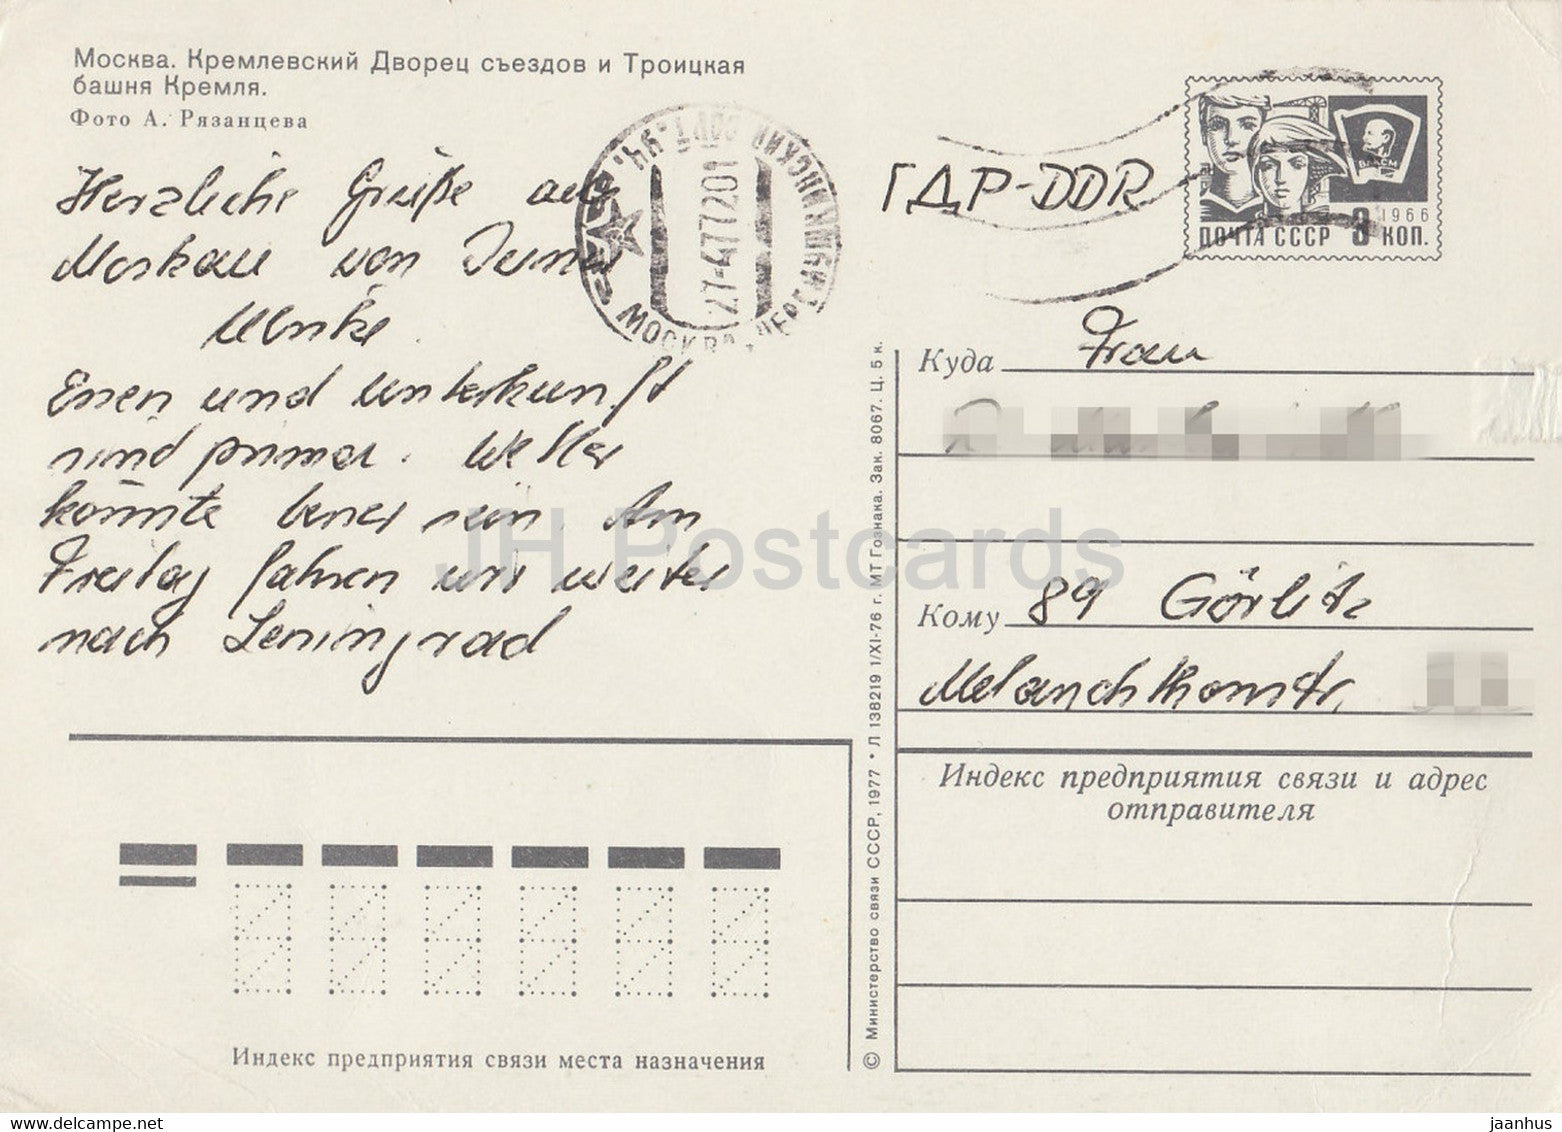 Москва. Кремлевский Дворец съездов и Троицкая
башня Кремля.
Фото А. Рязанцева
Herzliche Grüße aus
Moskau von
Essen und Unterkunft
sind prima. Wetter
könnte besser sein. Am
Freitag fahren wir weiter
nach Leningrad
МОСКВА
27-47720
ГДР-DDR
ВЛКСМ
1966
ПОЧТА СССР 3 КОП.
Куда Frau
Кому 89 Görlitz
Melanchthonstr.
Индекс предприятия связи и адрес
отправителя
© Министерство связи СССР, 1977 • Л 138219 1/XI-76 г. МТ Гознака. Зак. 8067. Ц. 5 к.
Индекс предприятия связи места назначения
JH Postcards
www.delcampe.net
jaanhus